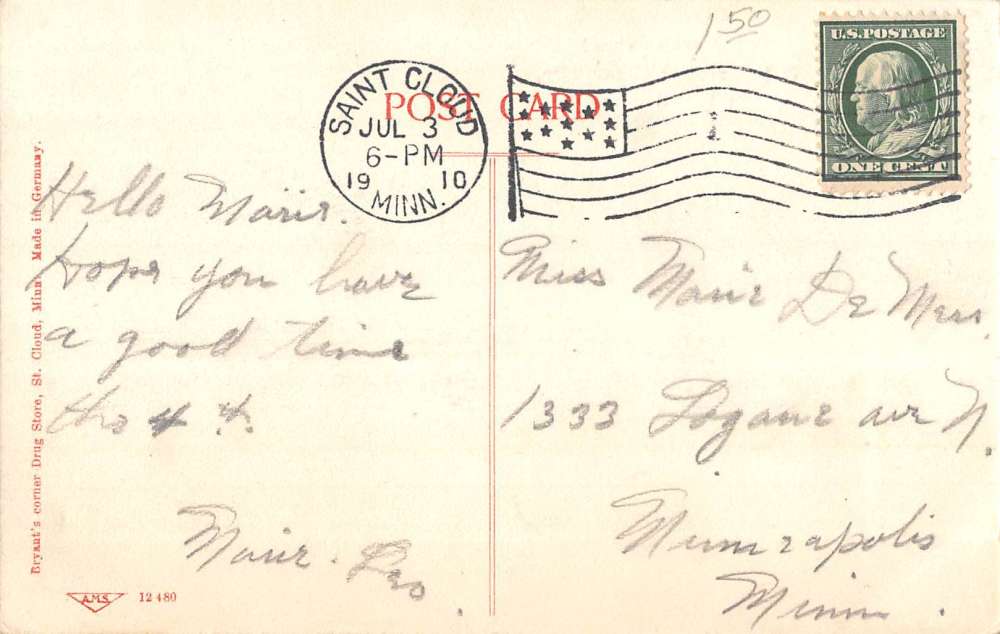 1 50
U.S. POSTAGE
ONE CENT
SAINT CLOUD
JUL 3
6-PM
19 10
MINN.
POST CARD
Hello Marie.
Hope you have
a good time
the 4 th.
Marie
Miss Marie De Mers
1333 Logan ave N.
Minneapolis
Minn.
Bryant's corner Drug Store, St. Cloud, Minn. Made in Germany.
A.M.S. 12 480